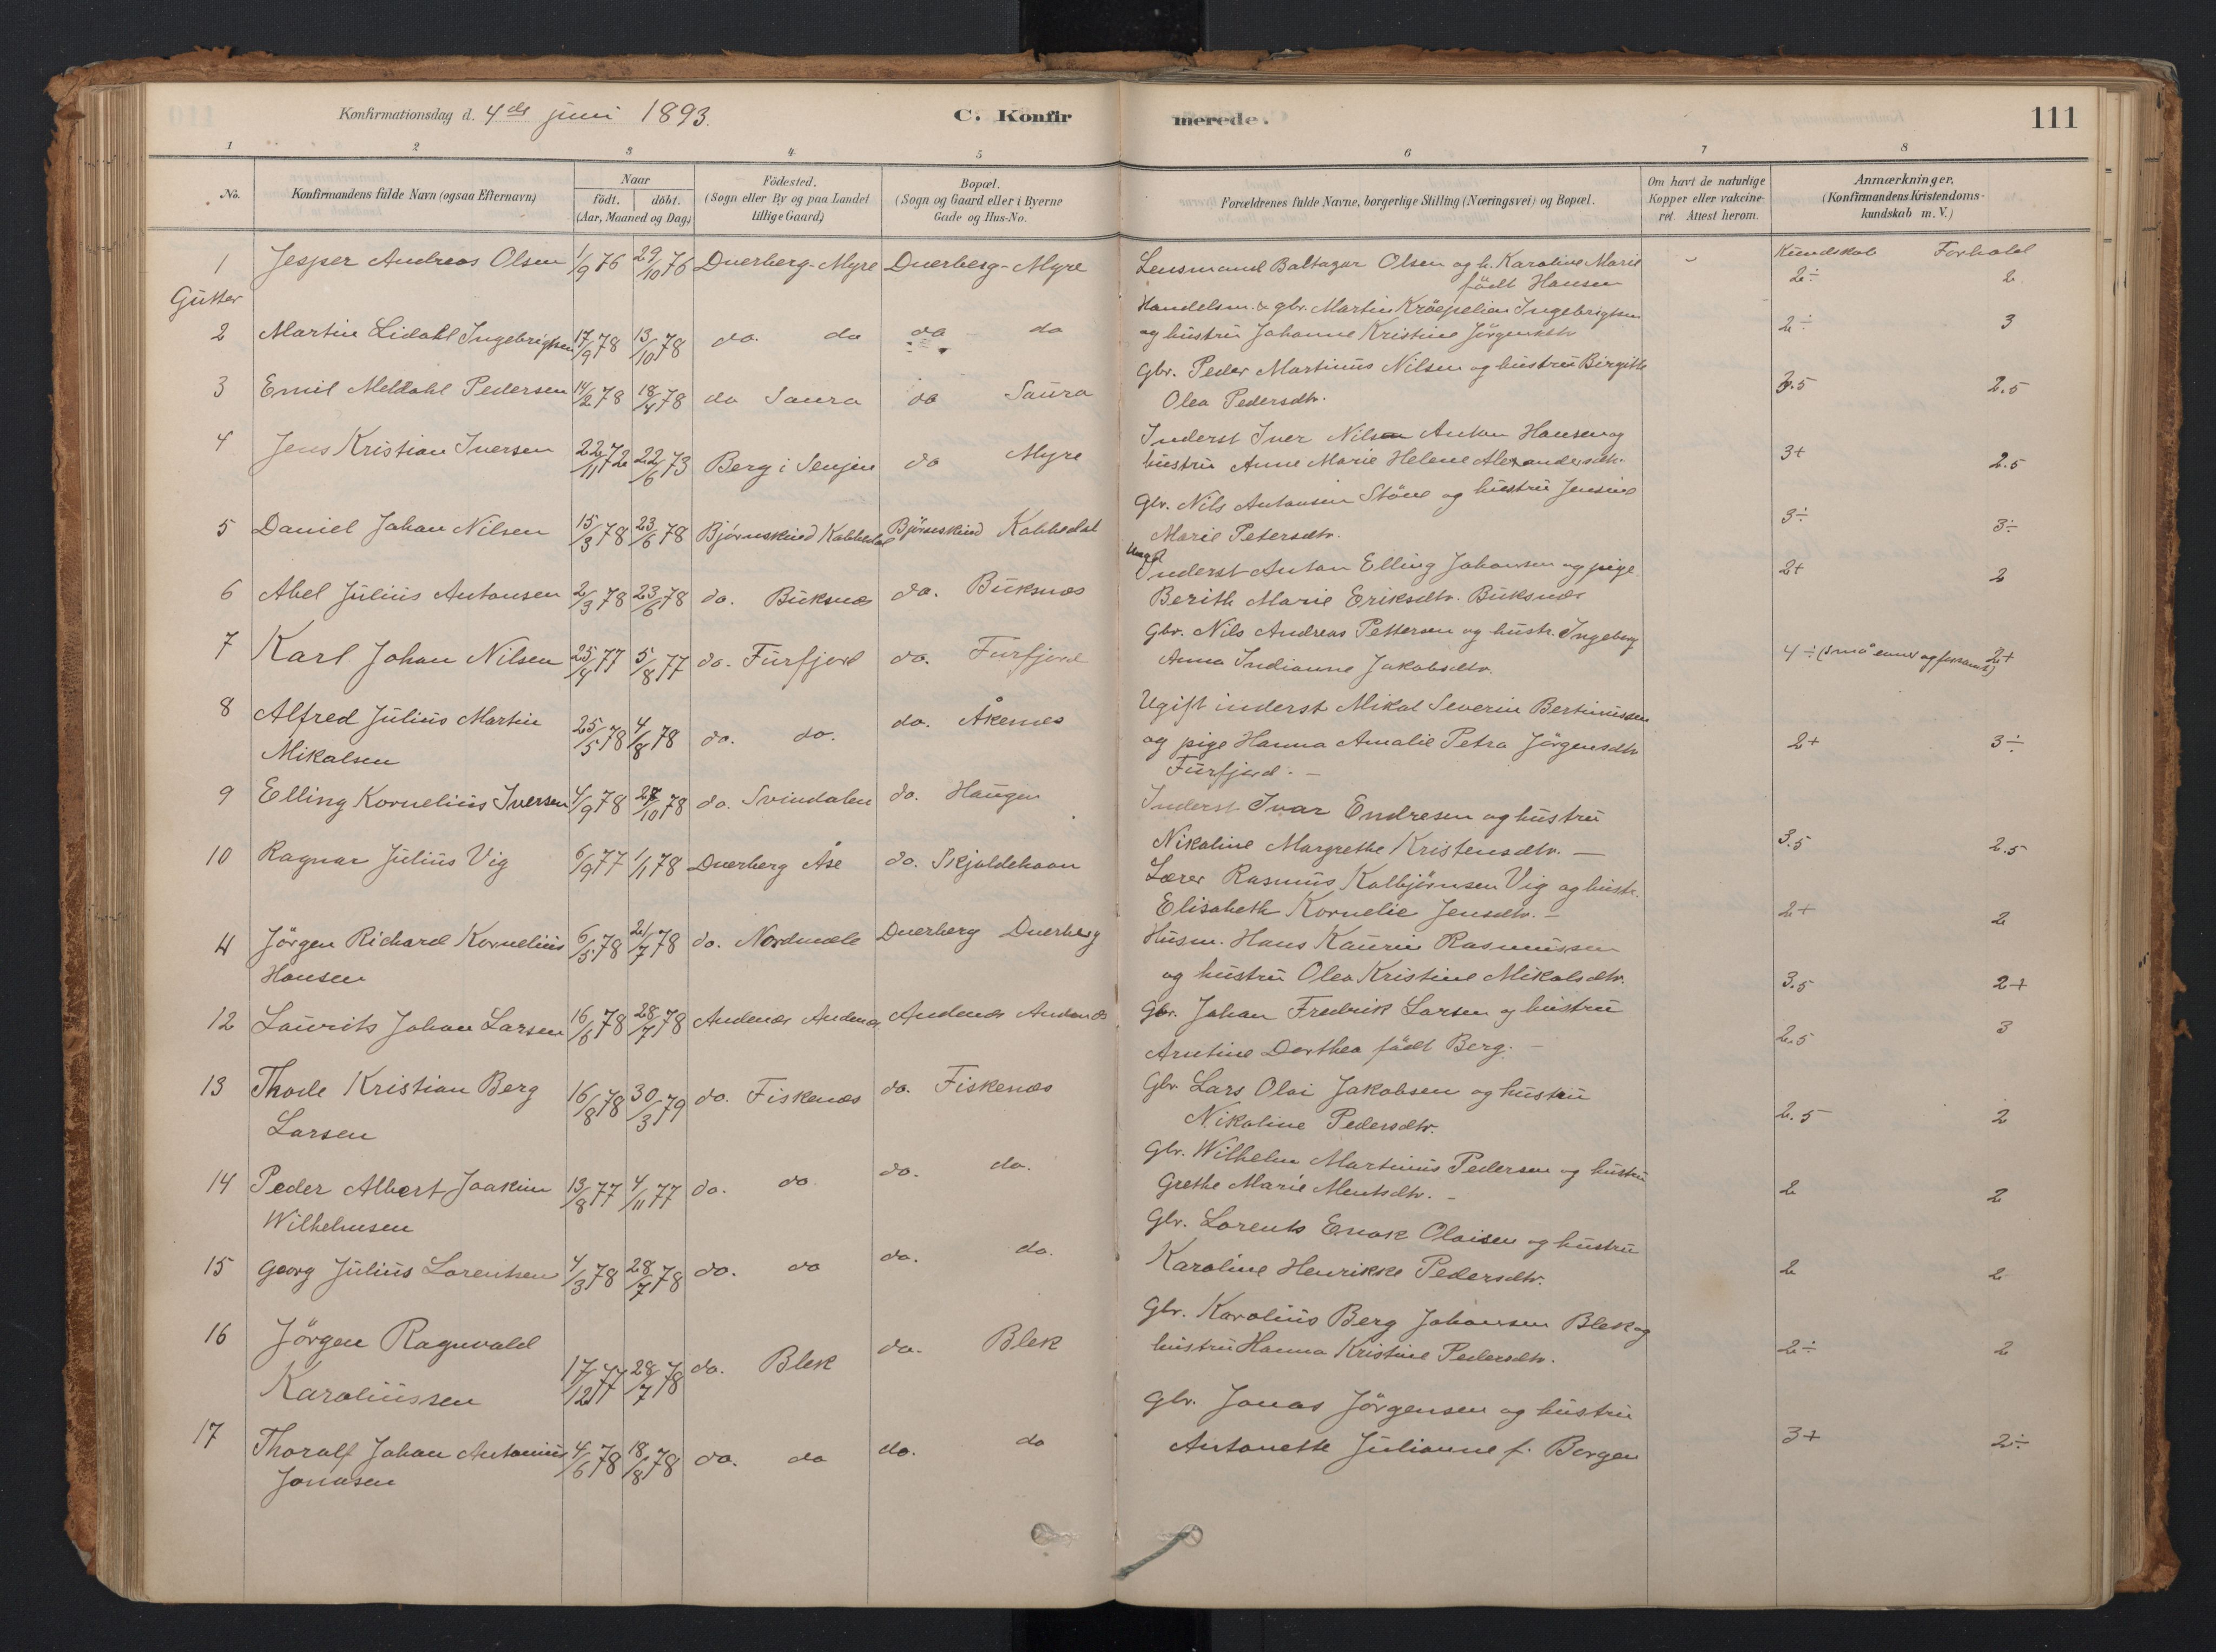 Konfirmationsdag d. 4de juni 1893.
C. Konfirmerede.
111
1 2 3 4 5 6 7 8
No.
Konfirmandens fulde Navn (ogsaa Efternavn)
Naar
födt. döbt.
(Aar, Maaned og Dag)
Födested.
(Sogn eller By og paa Landet
tillige Gaard)
Bopæl.
(Sogn og Gaard eller i Byerne
Gade og Hus-No.
Forældrenes fulde Navne, borgerlige Stilling (Næringsvei) og Bopæl.
Om havt de naturlige
Kopper eller vakcine-
ret Attest herom.
Anmærkninger,
(Konfirmandens Kristendoms-
kundskab m. V.)
Kundskab Forhold
Gutter
1 Jesper Andreas Olsen 1/9 76 29/10 76 Dverberg-Myre Dverberg-Myre Lensmand Baltazar Olsen og h. Karoline Marie
födt Hansen 2÷ 2
2 Martin Lidahl Ingebrigtsen 17/9 78 13/10 78 do. do do do Handelsm. & gbr. Martin Kröepelien Ingebrigtsen
og hustru Johanne Kristine Jörgensdtr 2÷ 3
3 Emil Meldahl Pedersen 14/2 78 18/4 78 do Saura do Saura Gbr. Peder Martinus Nilsen og hustru Birgitte
Olea Pedersdtr. 2.5 2.5
4 Jens Kristian Iversen 22/11 72 22/6 73 Berg i Senjen do Myre Inderst Iver Nilsen Anton Hansen og
hustru Anne Marie Helene Alexandersdtr. 3+ 2.5
5 Daniel Johan Nilsen 15/3 78 23/6 78 Bjørnskind Kobbedal Bjørnskind Kobbedal Gbr. Nils Antonsen Stöne og hustru Jensine
Marie Petersdtr. 3÷ 3÷
6 Abel Julius Antonsen 2/3 78 23/6 78 do. Buksnæs do. Buksnæs Ungk Inderst Anton Elling Johansen og pige
Berith Marie Eriksdtr. Buksnæs 2+ 2
7 Karl Johan Nilsen 25/4 77 5/8 77 do. Furfjord do. Furfjord Gbr. Nils Andreas Pettersen og hustr. Ingeborg
Anna Indianne Jakobsdtr. 4÷ (små evner og forsømt) 2+
8 Alfred Julius Martin
Mikalsen 25/5 78 4/8 78 do. do. do. Åkenes Ugift inderst Mikal Severin Bertinussen
og pige Hanna Amalie Petra Jörgensdtr
Furfjord. – 2+ 3÷
9 Elling Kornelius Iversen 4/9 78 27/10 78 do. Svindalen do. Haugen Inderst Ivar Endresen og hustru
Nikoline Margrethe Kristensdtr. – 3.5 2.5
10 Ragnar Julius Vig 6/9 77 1/1 78 Dverberg Åse do. Skjoldehavn Lærer Rasmus Kolbjörnsen Vig og hustr.
Elisabeth Kornelie Jensdtr. – 2+ 2
11 Jörgen Richard Kornelius
Hansen 6/5 78 21/7 78 do. Nordmæle Dverberg Dverberg Husm. Hans Kaurin Rasmussen
og hustru Olea Kristine Mikalsdtr. 3.5 2+
12 Laurits Johan Larsen 16/6 78 28/7 78 Andenæs Andenæs Andenæs Andenæs Gbr. Johan Fredrik Larsen og hustru
Arntine Dorthea födt Berg. – 2.5 3
13 Thode Kristian Berg
Larsen 16/8 78 30/3 79 do. Fiskenæs do. Fiskenæs Gbr. Lars Olai Jakobsen og hustru
Nikoline Pedersdtr. 2.5 2
14 Peder Albert Joakim
Wilhelmsen 13/8 77 4/11 77 do. do do. do. Gbr. Wilhelm Martinus Pedersen og hustru
Grethe Marie Mentsdtr. – 2 2
15 Georg Julius Lorentsen 4/3 78 28/7 78 do. do do. do. Gbr. Lorents Enok Olaisen og hustru
Karoline Henrikke Pedersdtr. 2 2
16 Jörgen Ragnvald
Karoliussen 17/12 77 28/7 78 do. Blek do. Blek Gbr. Karolius Berg Johansen Blek og
hustru Hanna Kristine Pedersdtr. 2÷ 2
17 Thoralf Johan Antonius
Jonasen 4/6 78 18/8 78 do. do do. do Gbr. Jonas Jörgensen og hustru
Antonette Julianne f. Borgen 3+ 2÷